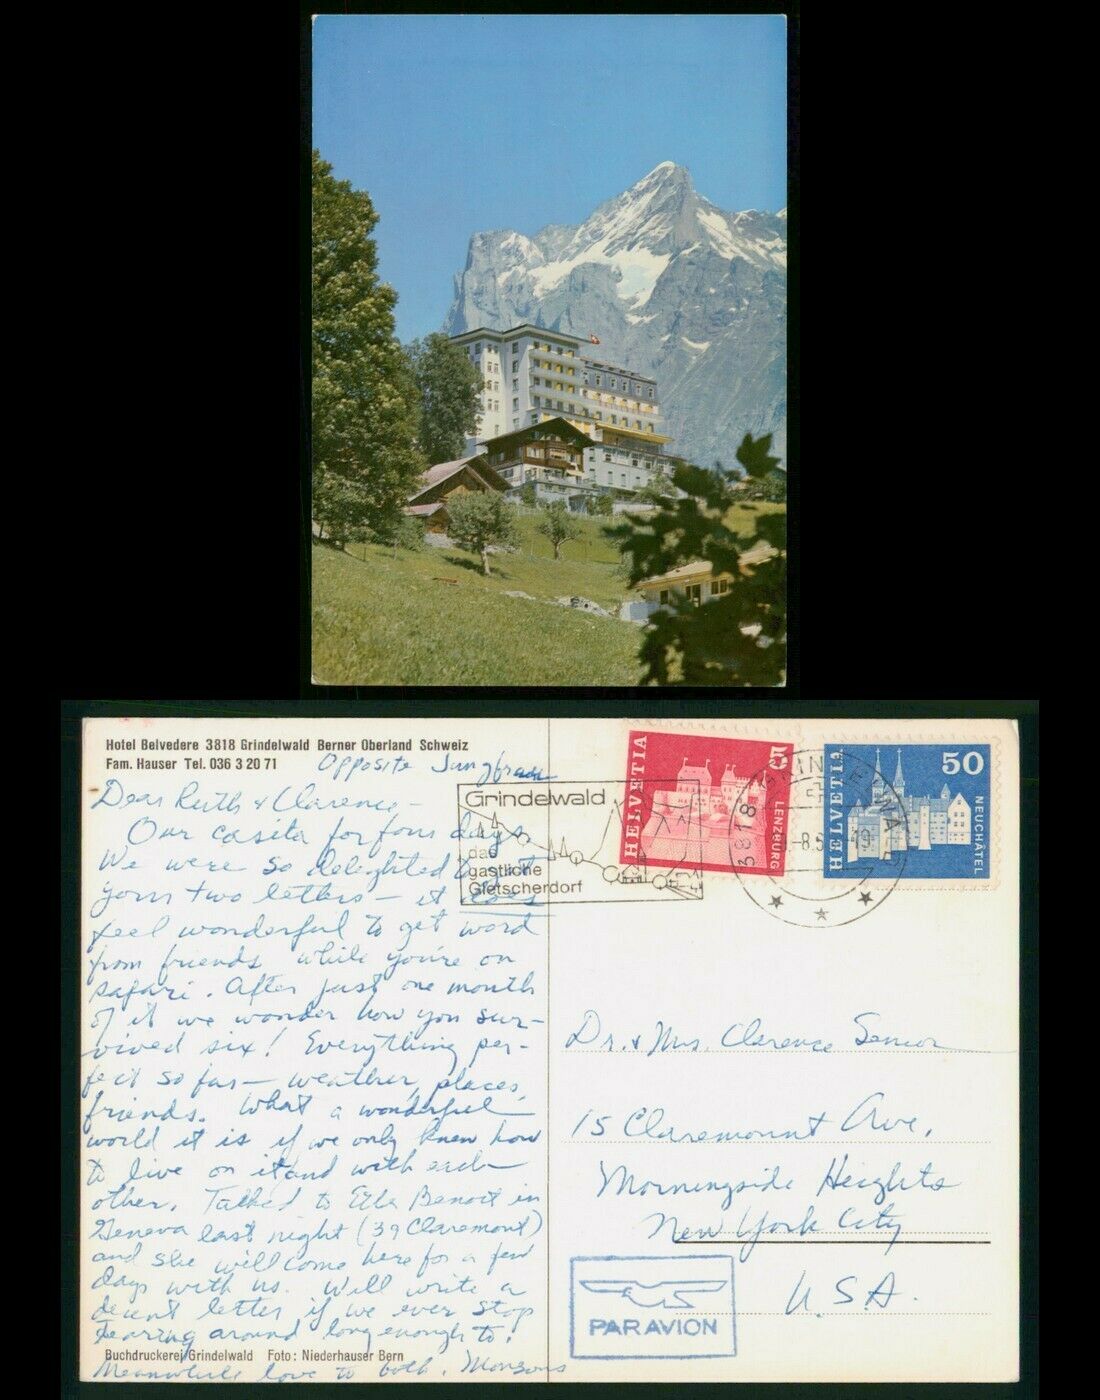 Hotel Belvedere 3818 Grindelwald Berner Oberland Schweiz
Fam. Hauser Tel. 036 3 20 71
Opposite Jungfrau
Dear Ruth & Clarence -
Our casita for four days.
We were so delighted
your two letters - it does
feel wonderful to get word
from friends while you're on
safari. After just one month
of it we wonder how you sur-
vived six! Everything per-
fect so far - weather, places,
friends. What a wonderful
world it is if we only knew how
to live on it and with each
other. Talked to Ella Benoit in
Geneva last night (39 Claremont)
and she will come here for a few
days with us. Will write a
decent letter if we ever stop
tearing around long enough to!
Buchdruckerei Grindelwald Foto: Niederhauser Bern
Meanwhile love to both, Monsons
Grindelwald
das
gastliche
Gletscherdorf
HELVETIA
LENZBURG
HELVETIA
50
NEUCHÂTEL
3818 GRINDELWALD
-8.5
Dr. & Mrs. Clarence Senior
15 Claremount Ave.
Morningside Heights
New York City
U.S.A.
PAR AVION